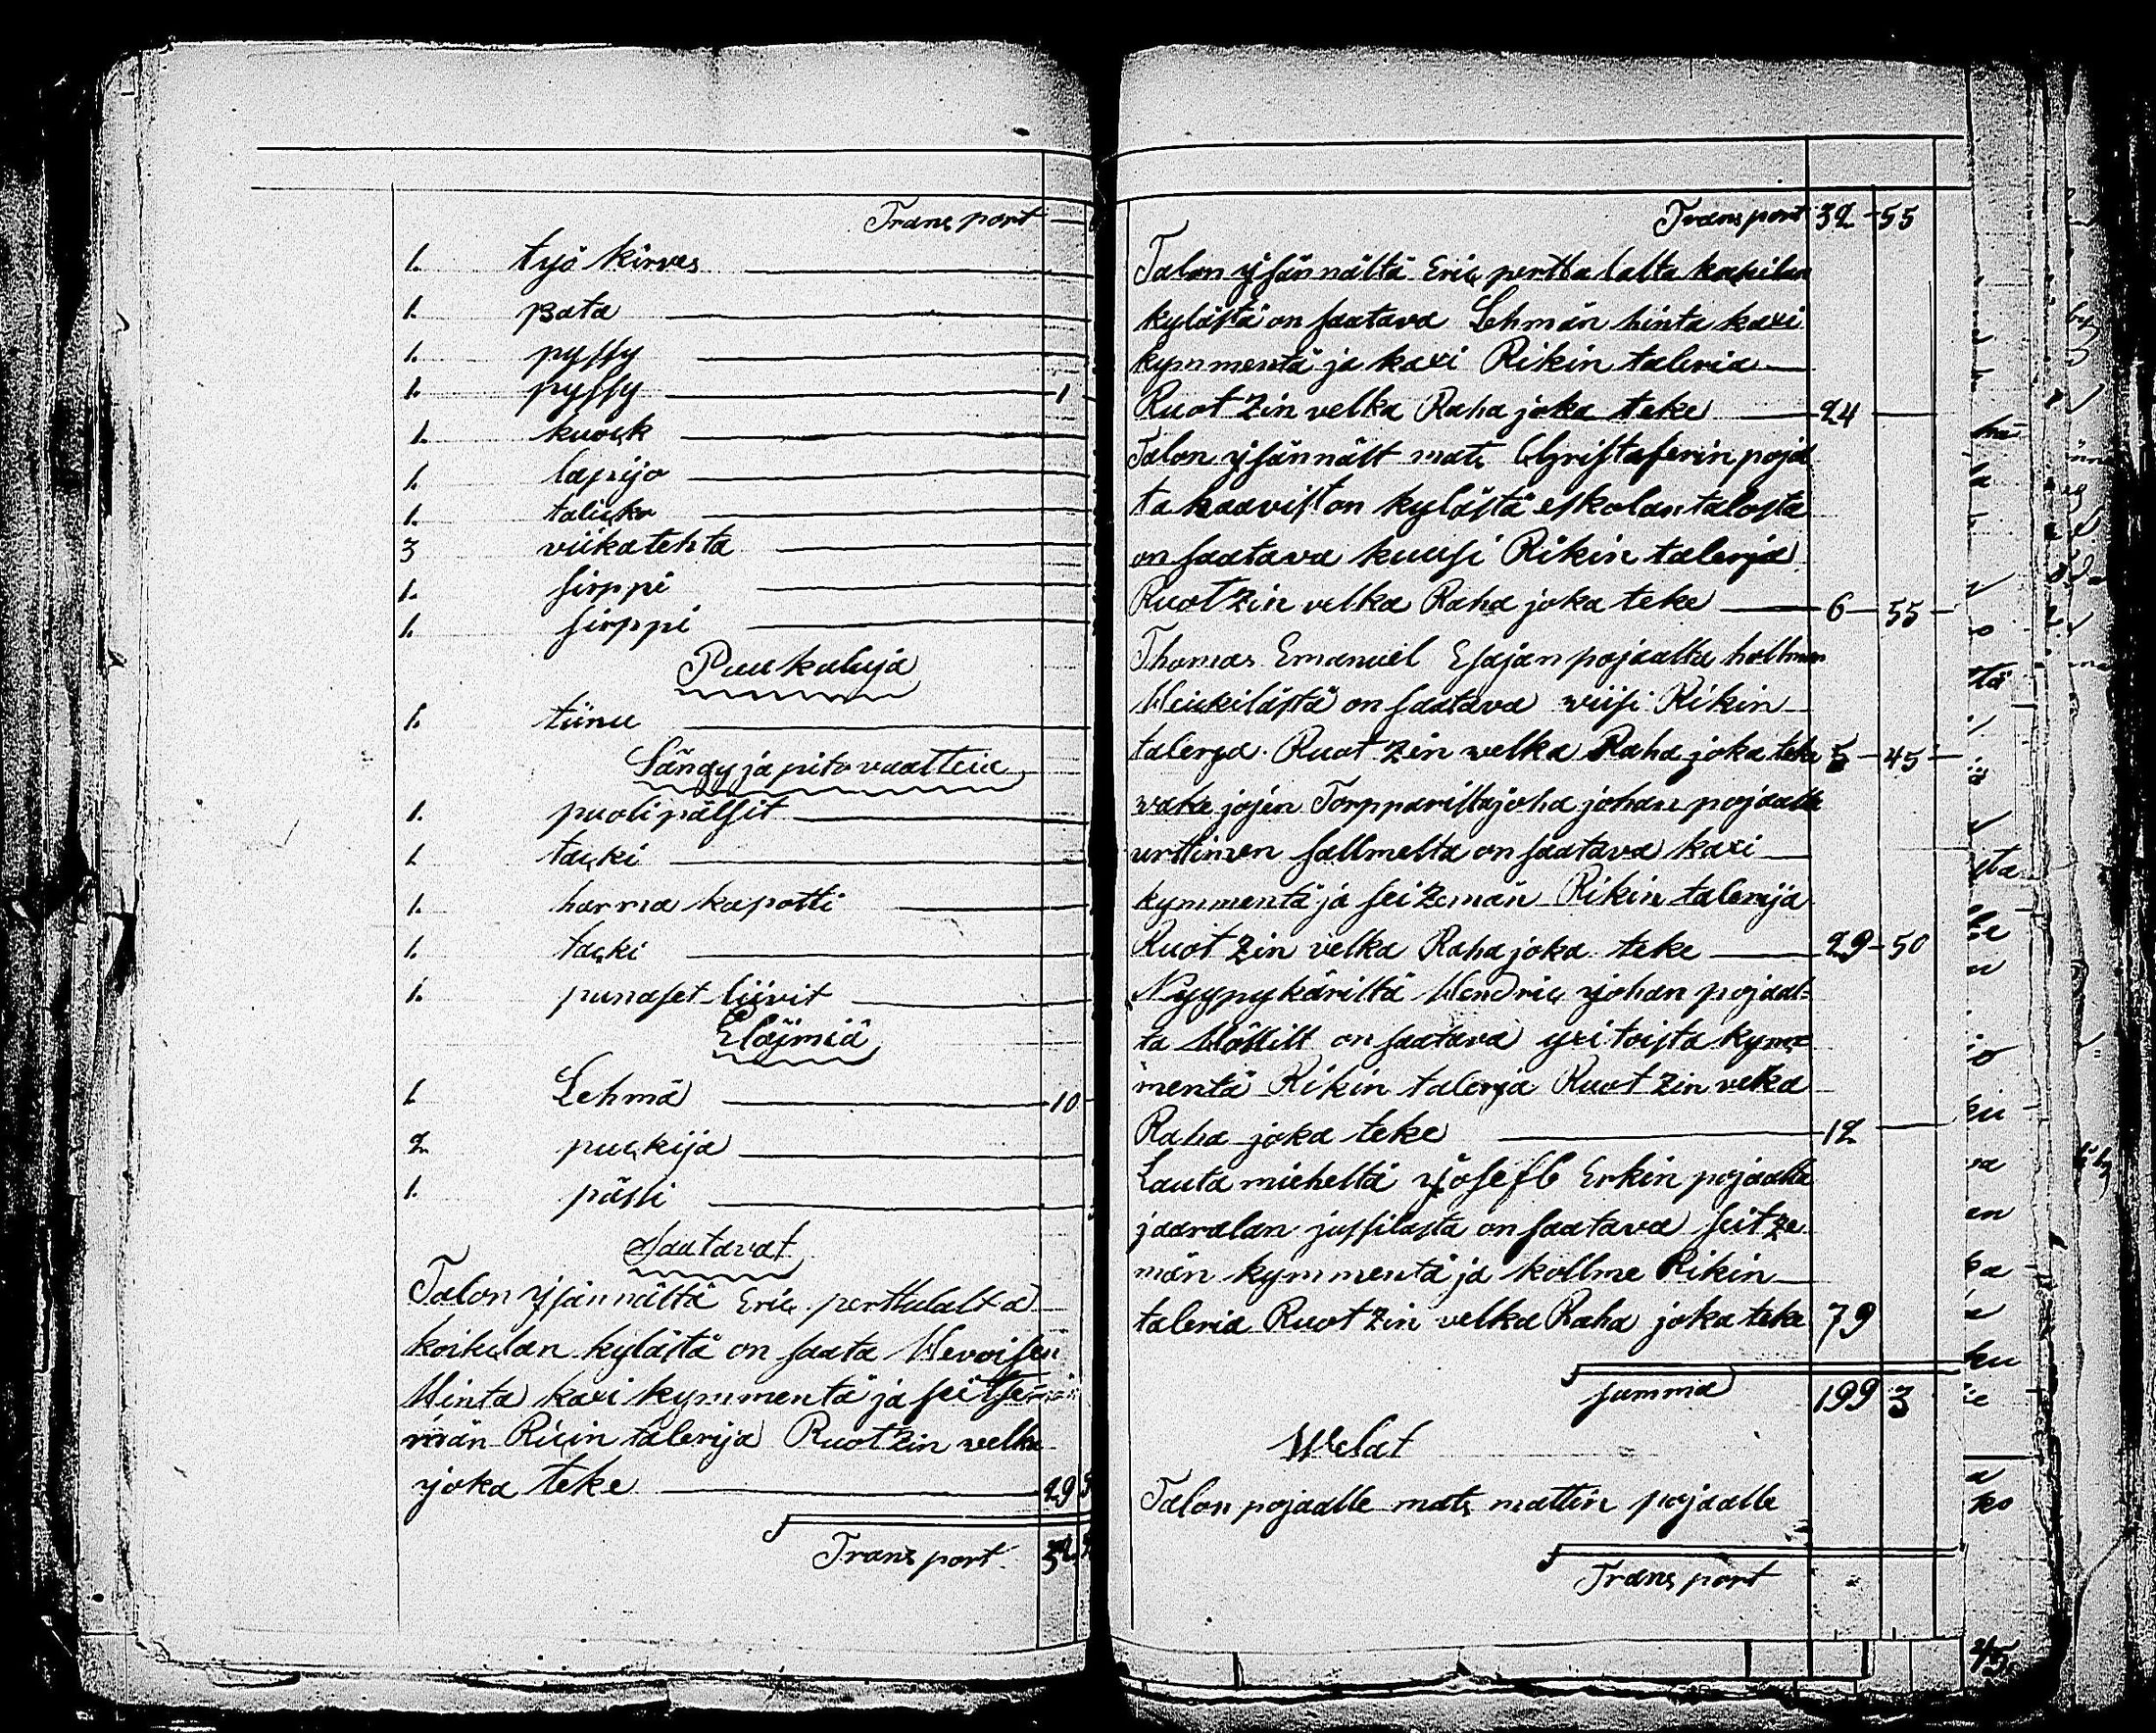 Trans port
1. työ kirves
1. pata
1. pyssy
1. pyssy 1
1. kuock
1. lapijo
1. talicko
3 viikatehta
1. sirppi
1. sirppi
Puu kaluja
1. tiinu
Sängy ja pito vaatteia
1. puoli pälsit
1. tacki
1. harma kapotti
1. tacki
1. punaset liivit
Eläjmiä
1. Lehmä 10
2. puckija
1. pässi
Saatavat
Talon ysännältä Eric perttulalta
koikulan kylästä on saata Hevoisen
Hinta kaxi kymmentä ja seitse
män Ricin talerija Ruotzin velka
joka teke 29
Trans port 32
Trans port 32 55
Talon ysännältä Eric perttalalta
kylästä on saatava Lehmän hinta kaxi
kymmentä ja kaxi Rikin taleria
Ruotzin velka Raha joka teke 24
Talon ysännält mats Christaferin poja
ta haaviston kylästä eskolan talosta
on saatava kuusi Rikin talerja
Ruotzin velka Raha joka teke 6 55
Thomas Emanuel Esajan pojaalta hollmen
Heickilästä on saatava viisi Rikin
talerja Ruotzin welka Raha joka teke 5 45
Torpparilta joha johan pojaalta
on saatava kaxi
kymmentä ja seitzemän Rikin talerija
Ruotzin velka Raha joka teke 29 50
Nyypykäriltä Hendric johan pojaal=
ta on saatava yxi toista kym=
mentä Rikin talerja Ruotzin velka
Raha joka teke 12
Lauta mieheltä Josefb Erkin pojaalta
jaaralan jussilasta on saatava seitze
män kymmentä ja kollme Rikin
taleria Ruotzin velka Raha joka teke 79
summa 199 3
Welat
Talon pojaalle mats mattin pojaalle
Trans port